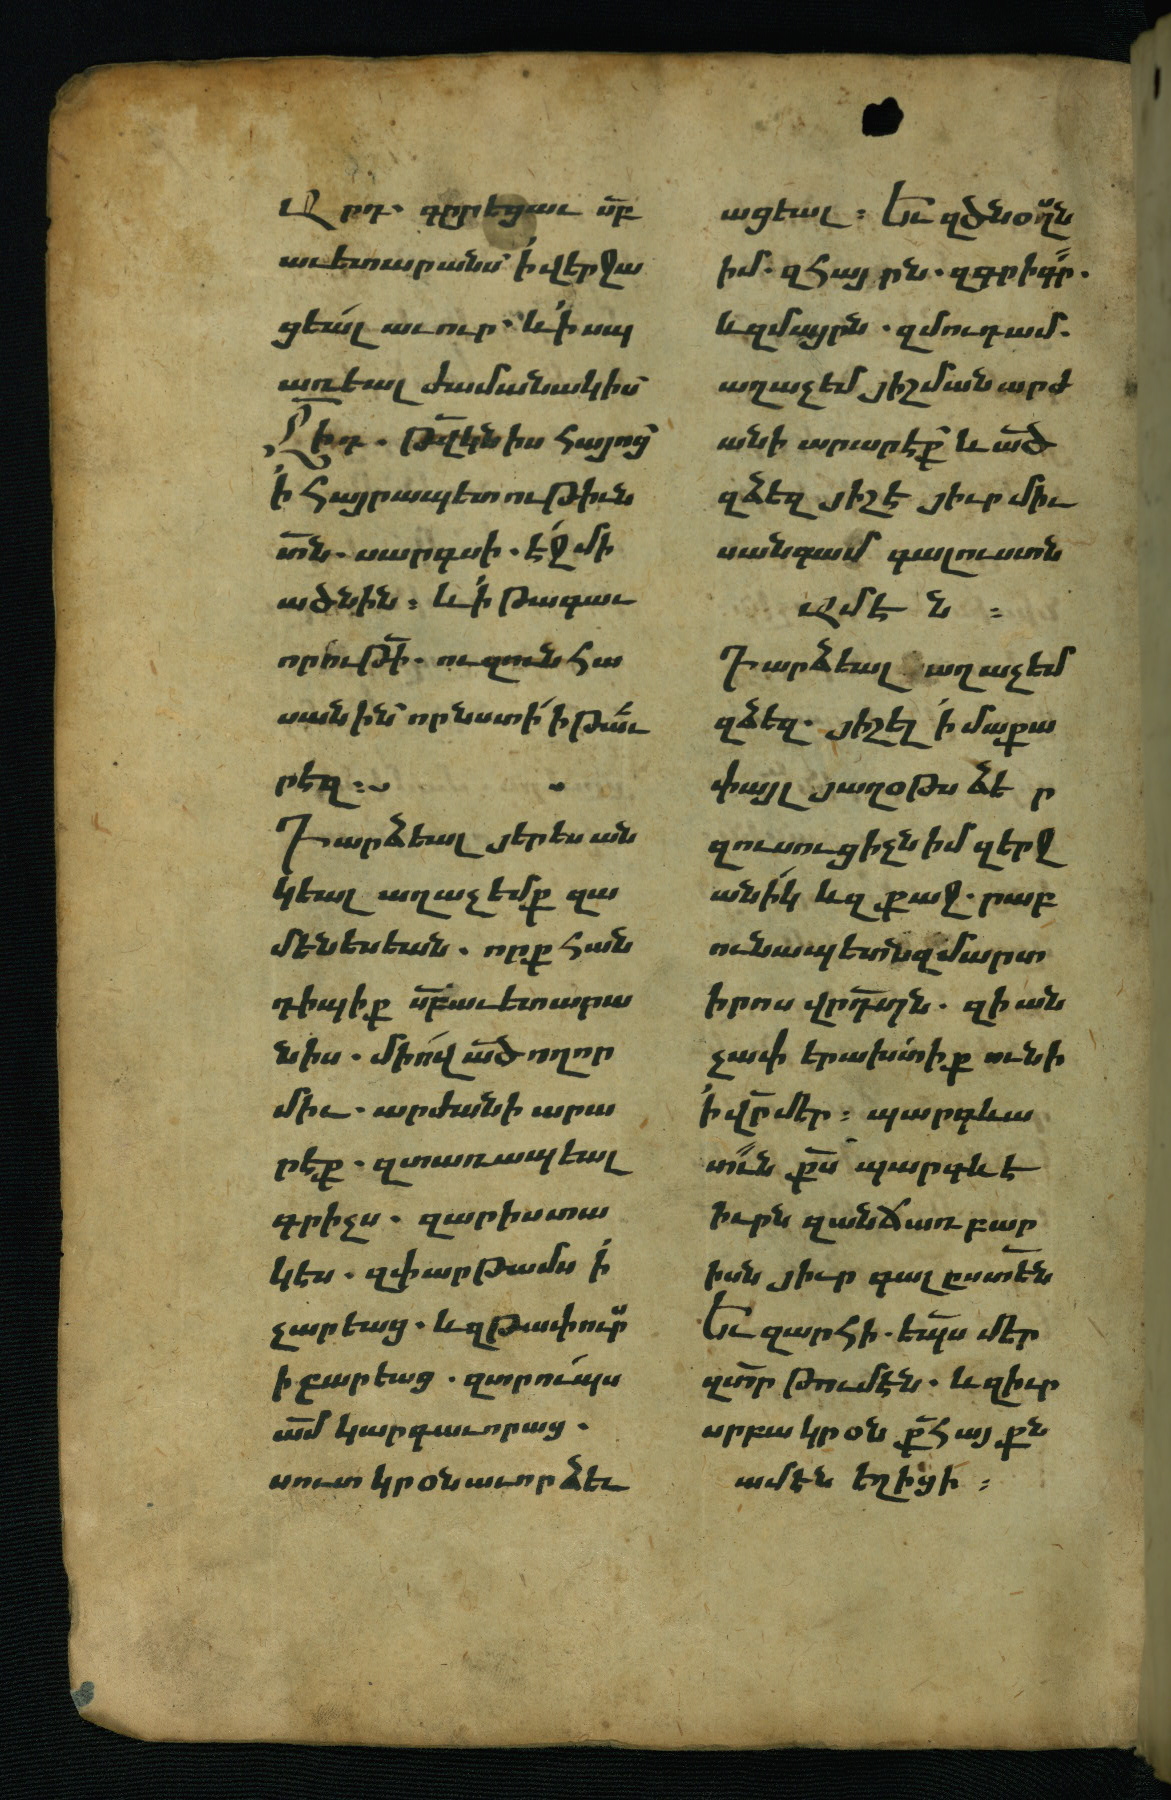 Արդ. գըրեցաւ սբ
աւետարանս ի վերջա
ցեալ աւուր. և ի սպ
առեալ ժամանակիս
Ջիդ. թվկնիս հայոց
ի հայրապետութիւն
տն. սարգսի. էջմի
ածնին։ և ի թագաւ
որութի. ուզուն հա
սանին որ նստի ի թաւ
րեզ։
Դարձեալ յերես ան
կեալ աղաչեմք զա
մէնեսեան. որք հան
դիպիք սբ աւետարա
նիս. միով ած ողոր
միւ. արժանի արա
րեք. զտառապեալ
գրիչս. զարիստա
կես. զփարթամս ի
չարեաց. և զթափուր
ի բարեաց. զտրուպս
ամ կարգաւորաց.
սուտ կրօնաւոր ձեւ
ացեալ։ Եւ զծնօղն
իմ. զհայրն. զգրիգր.
և զմայրն. զմուղամ.
աղաչեմ յիշման արժ
անի արարէք և ած
զձեզ յիշէ յիւր միւ
սանգամ գալուստն
Ամէն։
Դարձեալ աղաչեմ
զձեզ. յիշել ի մաքրա
փայլ յաղօթս ձեր
զուսուցիչն իմ զերջ
անիկ և զքաջ. րաբ
ունապետն զմարտ
իրոս վրդպն. զի ան
չափ երախտիք ունի
ի վր մեր։ պարգևա
տուն քս պարգևէ
իւրն զանճառ բար
իսն յիւր գալըստեն
Եւ զարհի. եպս մեր
զտր թումէն. և զիւր
սրբակրօն քհայքն
ամէն եղիցի։